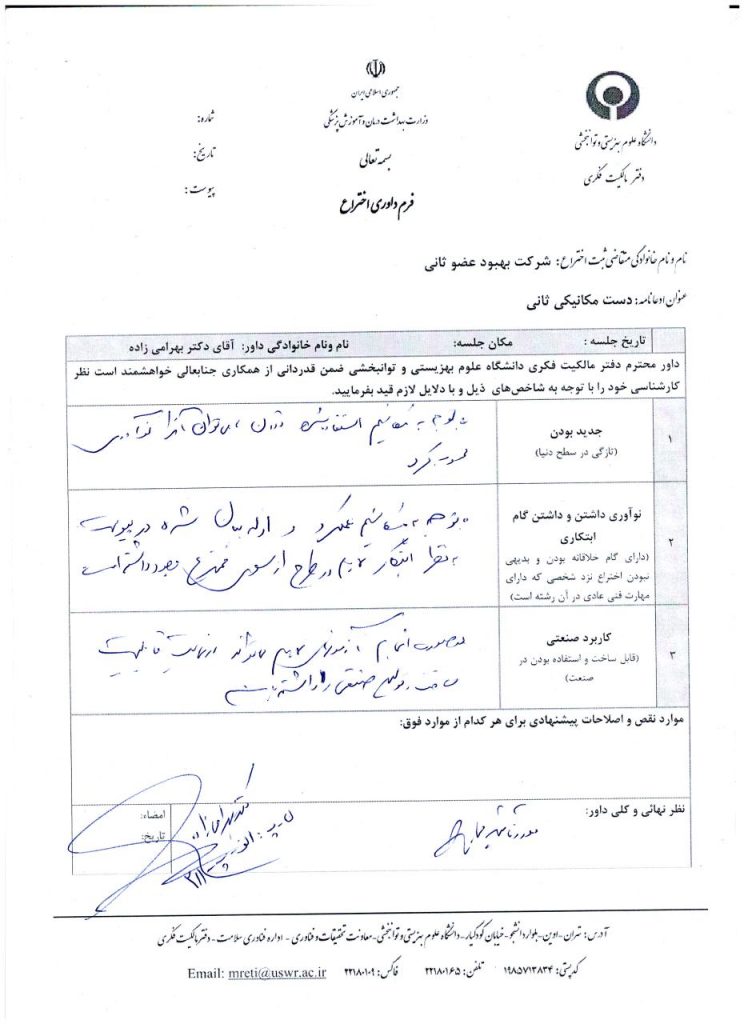 جمهوری اسلامی ایران
وزارت بهداشت درمان و آموزش پزشکی
بسمه تعالی
فرم داوری اختراع
دانشگاه علوم بهزیستی و توانبخشی
دفتر مالکیت فکری
شماره:
تاریخ:
پیوست:
نام و نام خانوادگی متقاضی ثبت اختراع: شرکت بهبود عضو ثانی
عنوان ادعانامه: دست مکانیکی ثانی
تاریخ جلسه : مکان جلسه: نام ونام خانوادگی داور: آقای دکتر بهرامی زاده
داور محترم دفتر مالکیت فکری دانشگاه علوم بهزیستی و توانبخشی ضمن قدردانی از همکاری جنابعالی خواهشمند است نظر
کارشناسی خود را با توجه به شاخص‌های ذیل و با دلایل لازم قید بفرمایید.
۱
جدید بودن
(تازگی در سطح دنیا)
با توجه به مکانیسم استفاده شده در آن ، می‌توان آنرا نوآوری
محسوب کرد
۲
نوآوری داشتن و داشتن گام
ابتکاری
(دارای گام خلاقانه بودن و بدیهی
نبودن اختراع نزد شخصی که دارای
مهارت فنی عادی در آن رشته است)
با توجه به مکانیسم عملکرد و ارائه شده در پیوست
به نظر ابتکار در طرح از سوی مخترع وجود داشته است
۳
کاربرد صنعتی
(قابل ساخت و استفاده بودن در
صنعت)
در صورت انجام آزمونهای لازم می‌تواند در نهایت قابلیت
ساخت و تولید صنعتی را داشته باشد
موارد نقص و اصلاحات پیشنهادی برای هر کدام از موارد فوق:
نظر نهائی و کلی داور:
امضاء:
تاریخ:
آدرس: تهران-اوین-بلوار دانشجو-خیابان کودکیار-دانشگاه علوم بهزیستی و توانبخشی-معاونت تحقیقات و فناوری - اداره فناوری سلامت - دفتر مالکیت فکری
کدپستی: ۱۹۸۵۷۱۳۸۳۴ تلفن: ۲۲۱۸۰۱۶۵ فاکس: ۲۲۱۸۰۱۰۹ Email: mreti@uswr.ac.ir